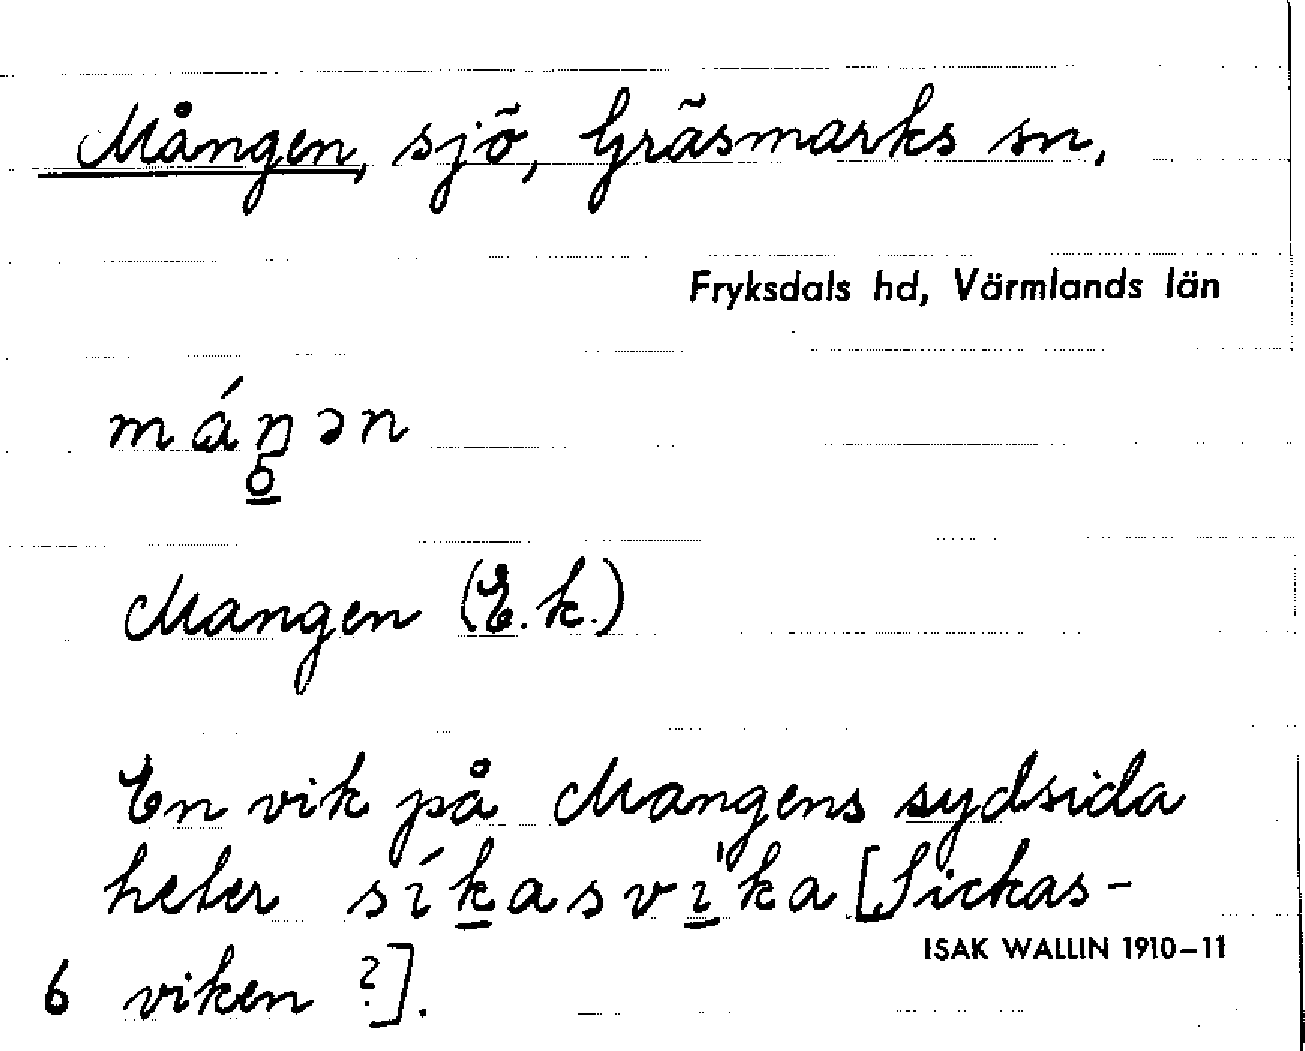 Mången, sjö, Gräsmarks sn,
Fryksdals hd, Värmlands län
máŋən
6
Mangen (E.k.)
En vik på Mangens sydsida
heter síkasvi'ka [Sickas-
ISAK WALLIN 1910-11
6 viken ?].